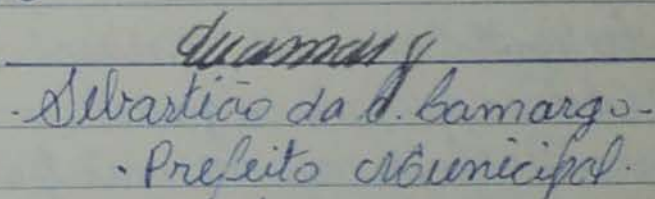 - Sebastião da S. Camargo -
- Prefeito Municipal.